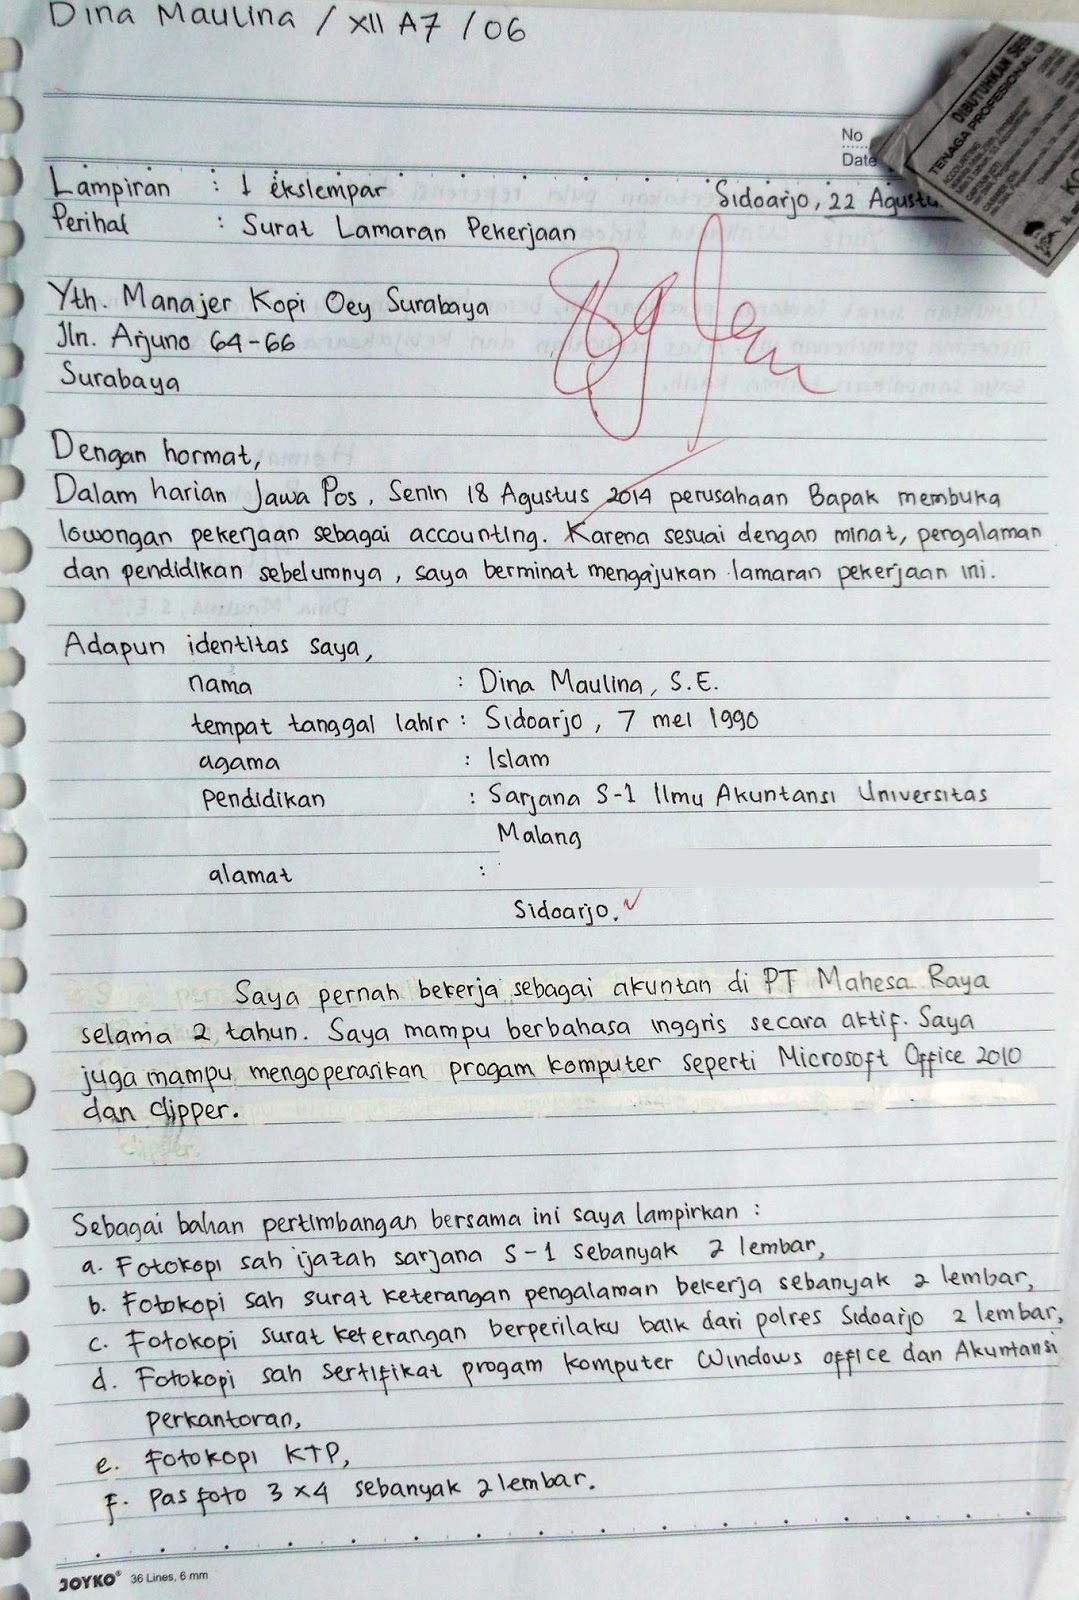 Dina Maulina / XII A7 / 06
No
Date
DIBUTUHKAN
TENAGA PROFESIONAL
Lampiran : 1 ekslempar
Sidoarjo, 22 Agustu
Perihal : Surat Lamaran Pekerjaan
Yth. Manajer Kopi Oey Surabaya
Jln. Arjuno 64-66
Surabaya
Dengan hormat,
Dalam harian Jawa Pos, Senin 18 Agustus 2014 perusahaan Bapak membuka
lowongan pekerjaan sebagai accounting. Karena sesuai dengan minat, pengalaman
dan pendidikan sebelumnya, saya berminat mengajukan lamaran pekerjaan ini.
Adapun identitas saya,
nama : Dina Maulina, S.E.
tempat tanggal lahir : Sidoarjo, 7 mei 1990
agama : Islam
pendidikan : Sarjana S-1 Ilmu Akuntansi Universitas
Malang
alamat :
Sidoarjo.
Saya pernah bekerja sebagai akuntan di PT Mahesa Raya
selama 2 tahun. Saya mampu berbahasa inggris secara aktif. Saya
juga mampu mengoperasikan progam komputer seperti Microsoft Office 2010
dan clipper.
Sebagai bahan pertimbangan bersama ini saya lampirkan :
a. Fotokopi sah ijazah sarjana S-1 sebanyak 2 lembar,
b. Fotokopi sah surat keterangan pengalaman bekerja sebanyak 2 lembar,
c. Fotokopi surat keterangan berperilaku baik dari polres Sidoarjo 2 lembar,
d. Fotokopi sah sertifikat progam komputer Windows office dan Akuntansi
perkantoran,
e. Fotokopi KTP,
f. Pas foto 3 x 4 sebanyak 2 lembar.
JOYKO® 36 Lines, 6 mm